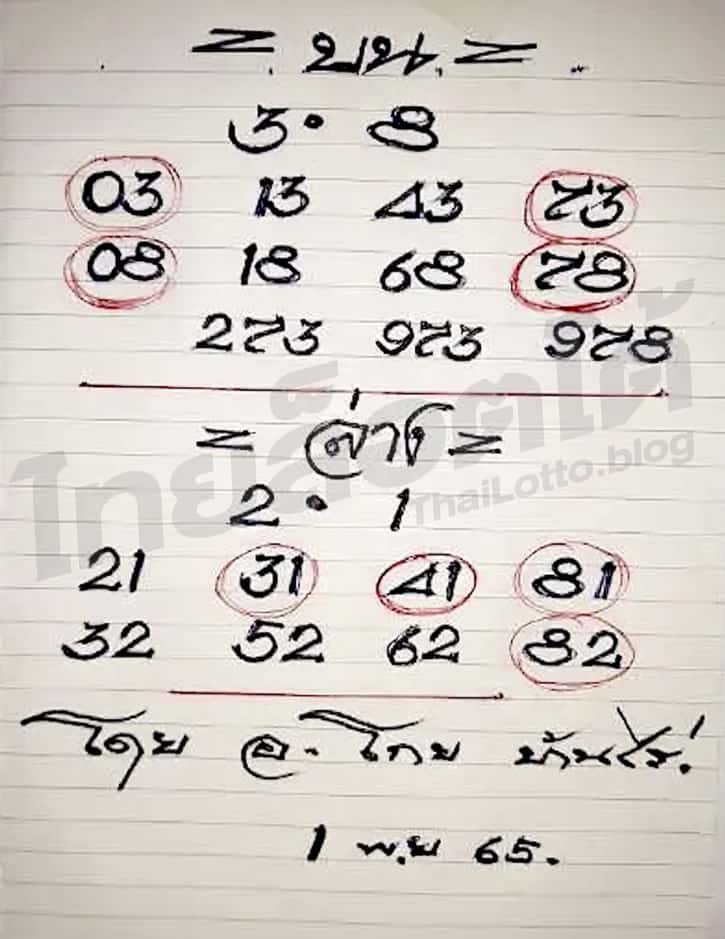 = บน =
3 · 8
03 13 43 73
08 18 68 78
273 973 978
= ล่าง =
ไทยล็อตโต้
ThaiLotto.blog
2 · 1
21 31 41 81
32 52 62 82
โดย อ. โกย บ้านไร่.
1 พ.ย 65.